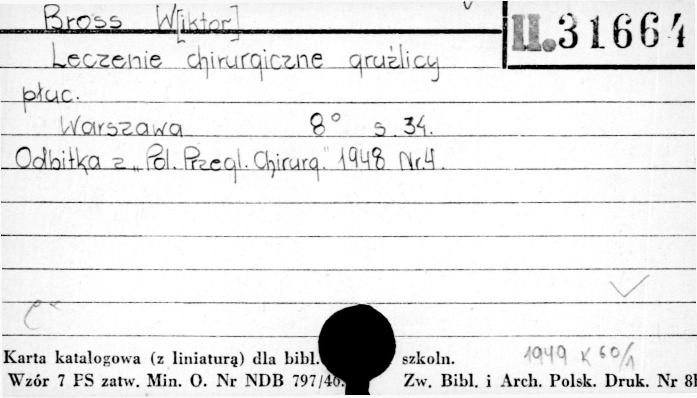 Bross W[iktor]
II.31664
Leczenie chirurgiczne gruźlicy
płuc.
Warszawa 8° s. 34.
Odbitka z „Pol. Przegl. Chirurg." 1948 Nr. 4.
1949 K 60/1
Karta katalogowa (z liniaturą) dla bibl. szkoln.
Wzór 7 PS zatw. Min. O. Nr NDB 797/46. Zw. Bibl. i Arch. Polsk. Druk. Nr